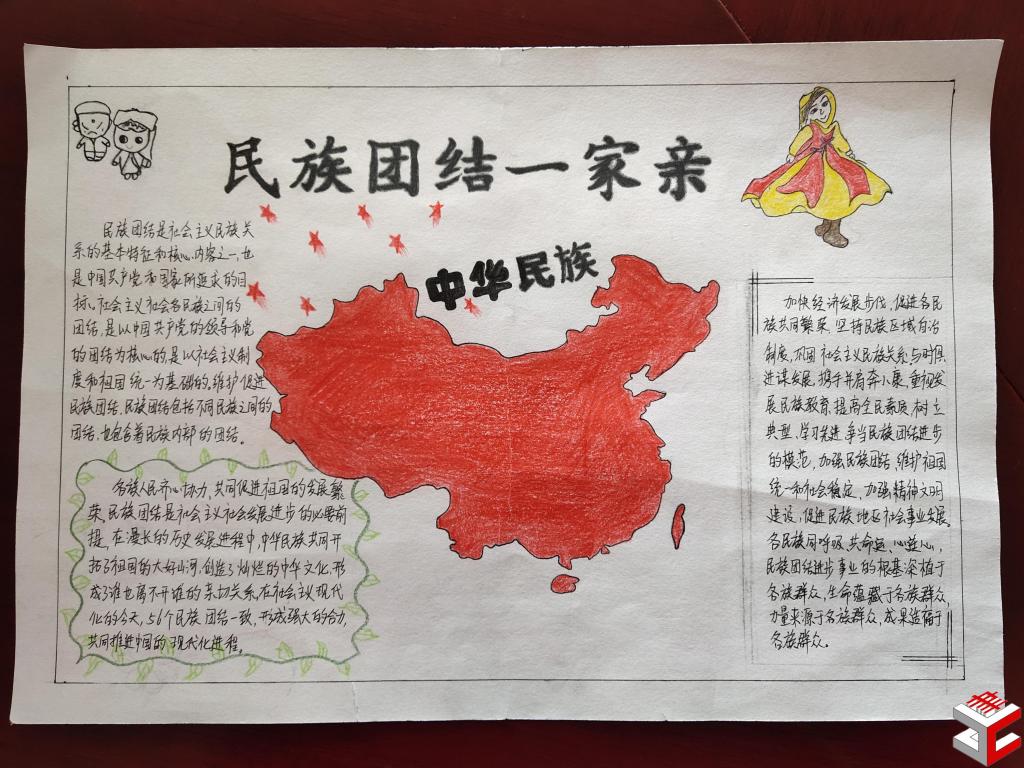 民族团结一家亲
中华民族
民族团结是社会主义民族关
系的基本特征和核心内容之一,也
是中国共产党和国家所追求的目
标。社会主义社会各民族之间的
团结,是以中国共产党的领导和党
的团结为核心的,是以社会主义制
度和祖国统一为基础的,维护促进
民族团结,民族团结包括不同民族之间的
团结,也包含着民族内部的团结。
各族人民齐心协力,共同促进祖国的发展繁
荣,民族团结是社会主义社会发展进步的必要前
提,在漫长的历史发展进程中,中华民族共同开
拓了祖国的大好山河,创造了灿烂的中华文化,形
成了谁也离不开谁的亲切关系,在社会主义现代
化的今天,56个民族团结一致,形成强大的合力,
共同推进中国的现代化进程。
加快经济发展步伐,促进各民
族共同繁荣,坚持民族区域自治
制度,巩固社会主义民族关系,与时俱
进谋发展,携手并肩奔小康,重视发
展民族教育,提高全民素质,树立
典型,学习先进,争当民族团结进步
的模范,加强民族团结,维护祖国
统一和社会稳定,加强精神文明
建设,促进民族地区社会事业发展,
各民族同呼吸,共命运,心连心,
民族团结进步事业的根基深植于
各族群众,生命蕴藏于各族群众,
力量来源于各族群众,成果造福于
各族群众。